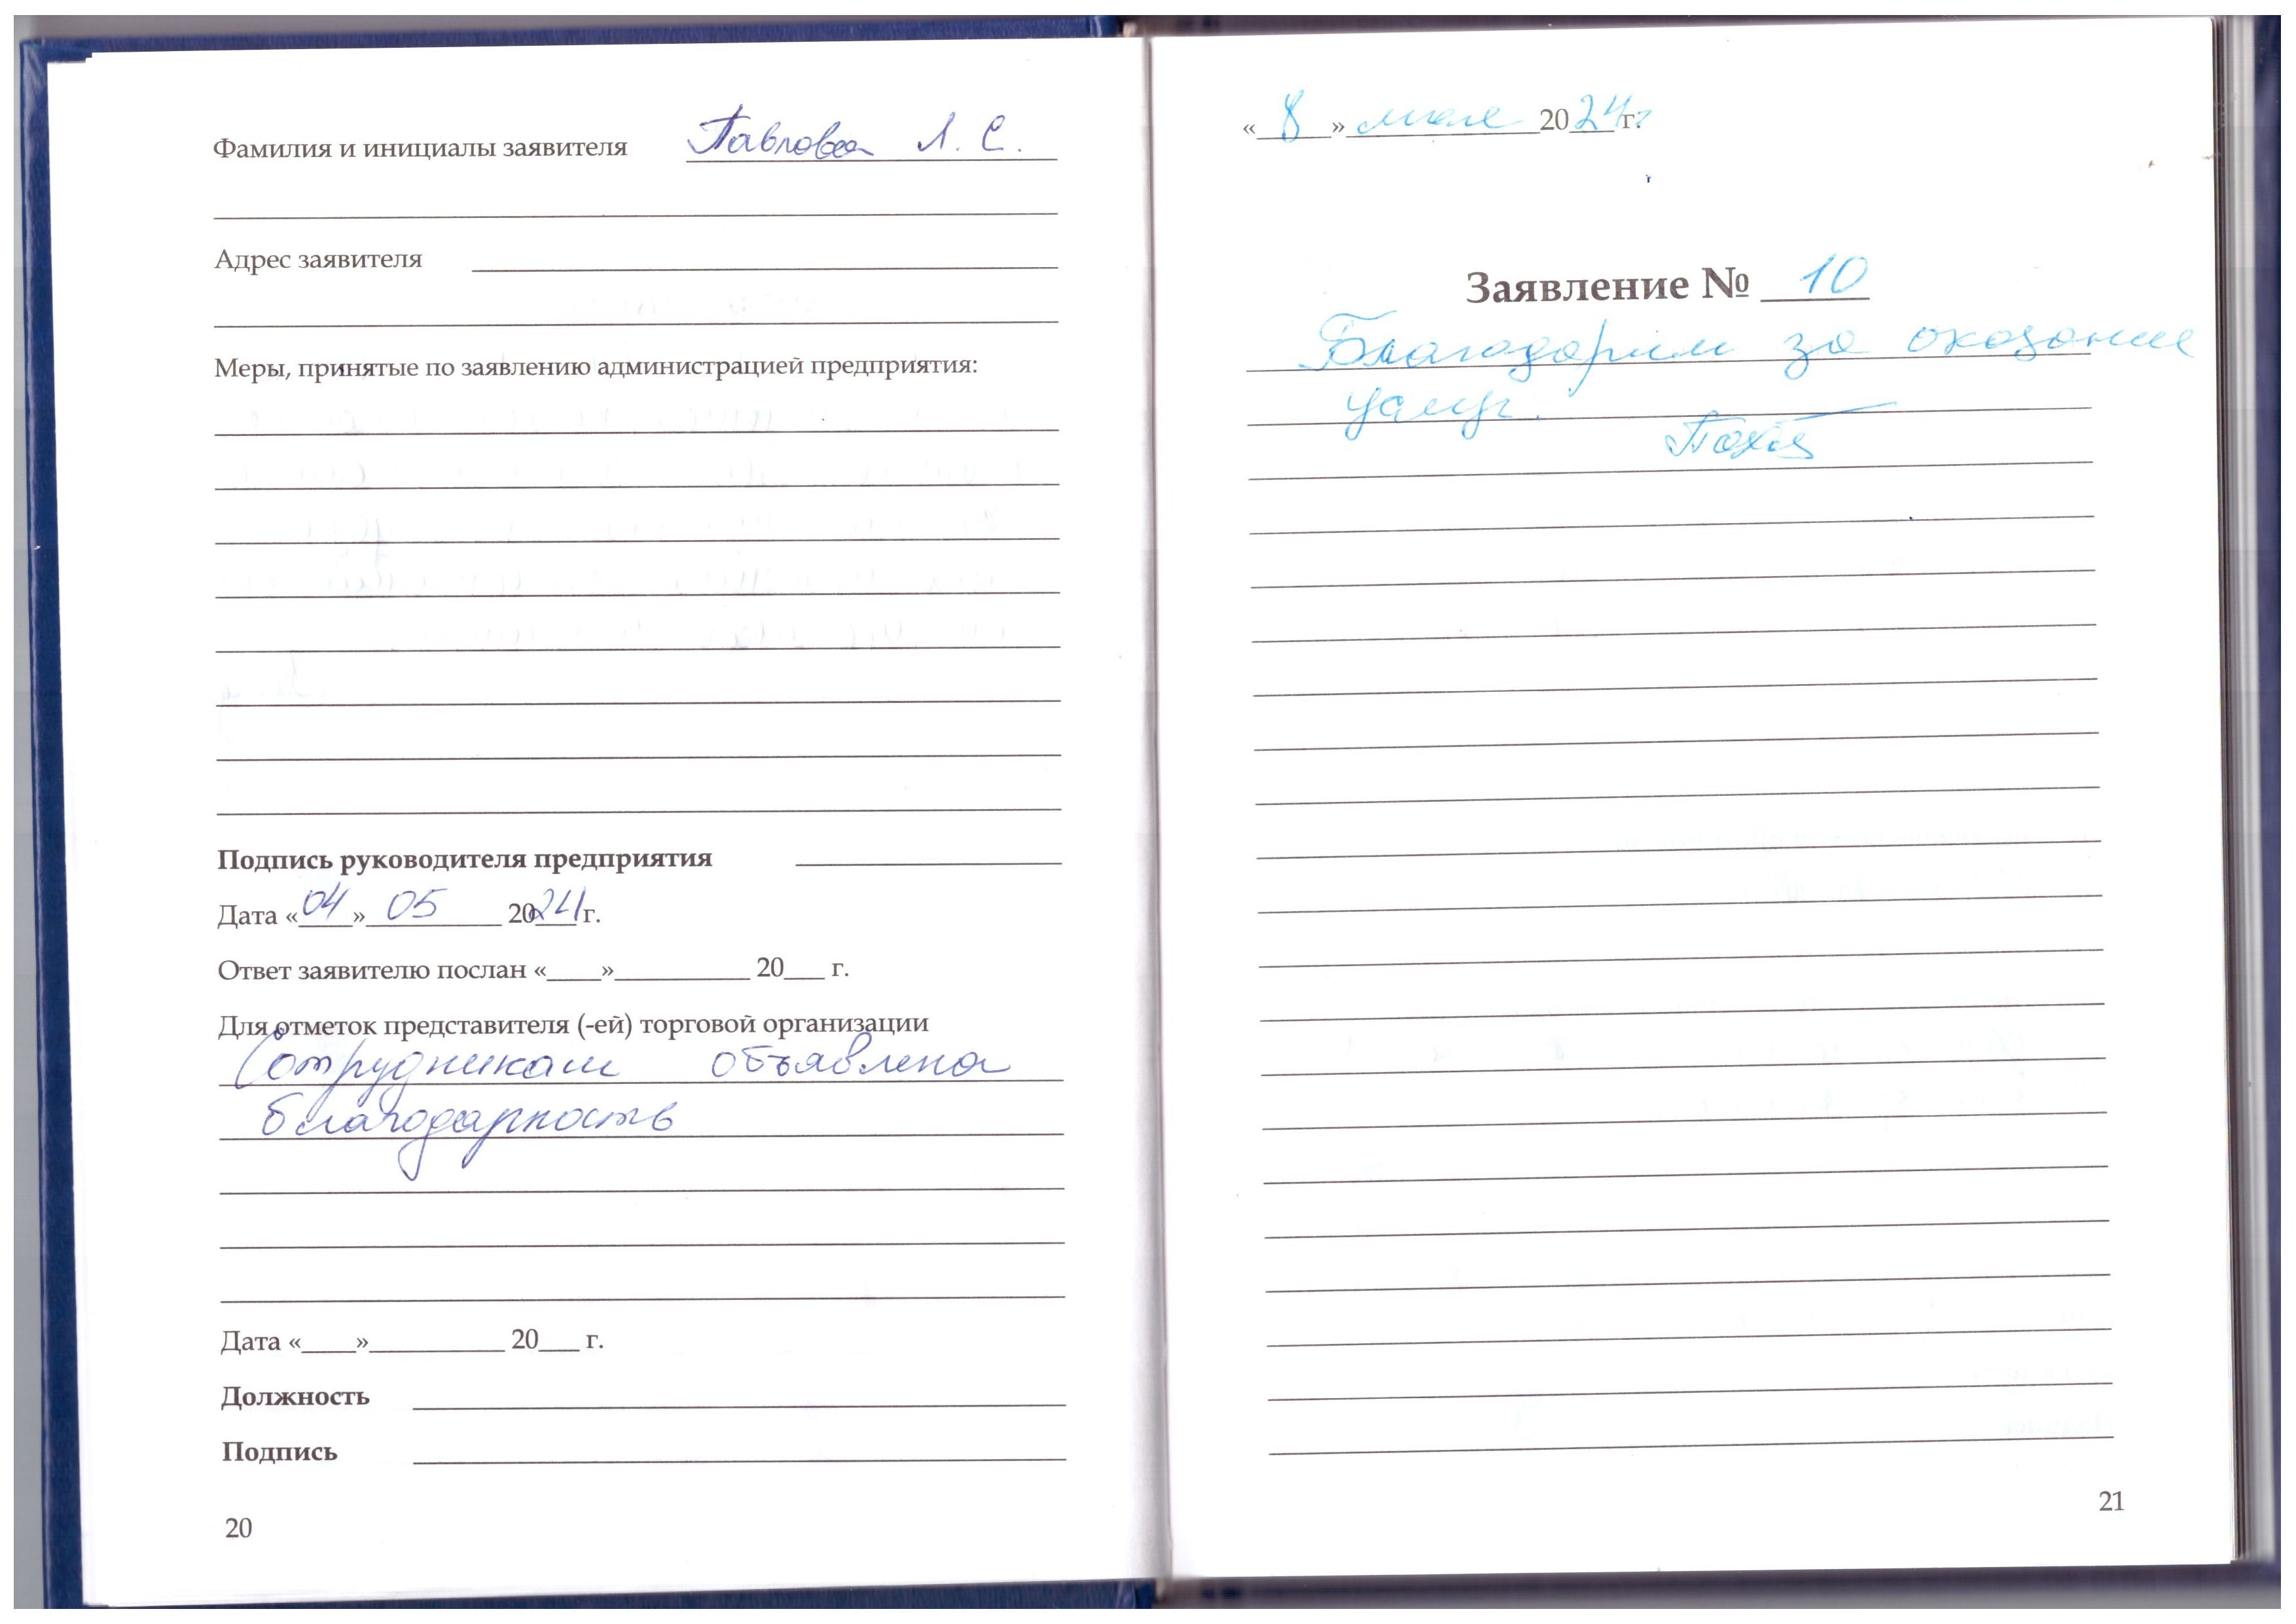 Фамилия и инициалы заявителя Павлова Л. С.
Адрес заявителя
Меры, принятые по заявлению администрацией предприятия:
Подпись руководителя предприятия
Дата «04» 05 2024 г.
Ответ заявителю послан «____»__________ 20___ г.
Для отметок представителя (-ей) торговой организации
Сотрудникам объявлена
благодарность
Дата «____»__________ 20___ г.
Должность
Подпись
20
«8» мая 2024 г.
Заявление № 10
Благодарим за оказание
услуг.
21